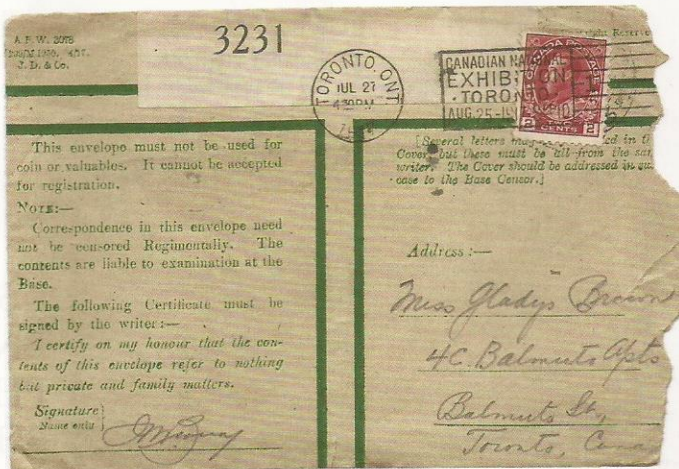 A.F.W. 3078
J. D. & Co.
3231
Copyright Reserve
TORONTO, ONT
JUL 27
4 30 PM
CANADIAN NATIONAL
EXHIBITION
TORONTO
AUG. 25 - SEP. 10
CANADA POSTAGE
2 CENTS 2
This envelope must not be used for
coin or valuables. It cannot be accepted
for registration.
NOTE:—
Correspondence in this envelope need
not be censored Regimentally. The
contents are liable to examination at the
Base.
The following Certificate must be
signed by the writer:—
I certify on my honour that the con-
tents of this envelope refer to nothing
but private and family matters.
Signature
Name only
[Several letters may ed in t
Cover, but these must be all from the sa
writer. The Cover should be addressed in su
case to the Base Censor.]
Address:—
Miss Gladys Brown
4C. Balmuto Apts
Balmuto St.,
Toronto, Cana